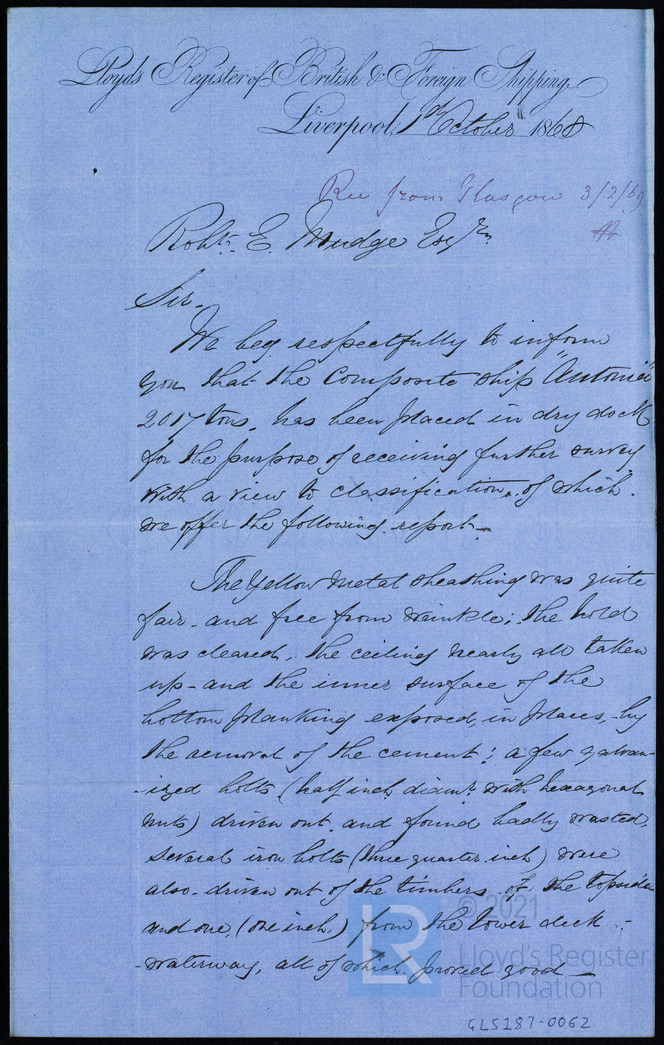 Lloyd's Register of British & Foreign Shipping,
Liverpool, 1st October 1868
Rec from Glasgow 3/2/69
Robt. E. Mudge Esqre.
Sir.
We beg respectfully to inform
you that the Composite ship "Antonia"
2017 tons, has been placed in dry dock
for the purpose of receiving further survey
with a view to classification, of which
we offer the following report—
The Yellow Metal sheathing was quite
fair and free from wrinkle; the hold
was cleared, the ceiling nearly all taken
up and the inner surface of the
bottom planking exposed, in places, by
the removal of the cement; a few galvan-
-ized bolts (half inch diamr. with hexagonal
nuts) driven out, and found badly wasted.
Several iron bolts (three quarter inch) were
also driven out of the timbers of the topsides
and one, (one inch,) from the lower deck
-waterway, all of which proved good—
© 2021
LR
Lloyd's Register
Foundation
GLS187-0062